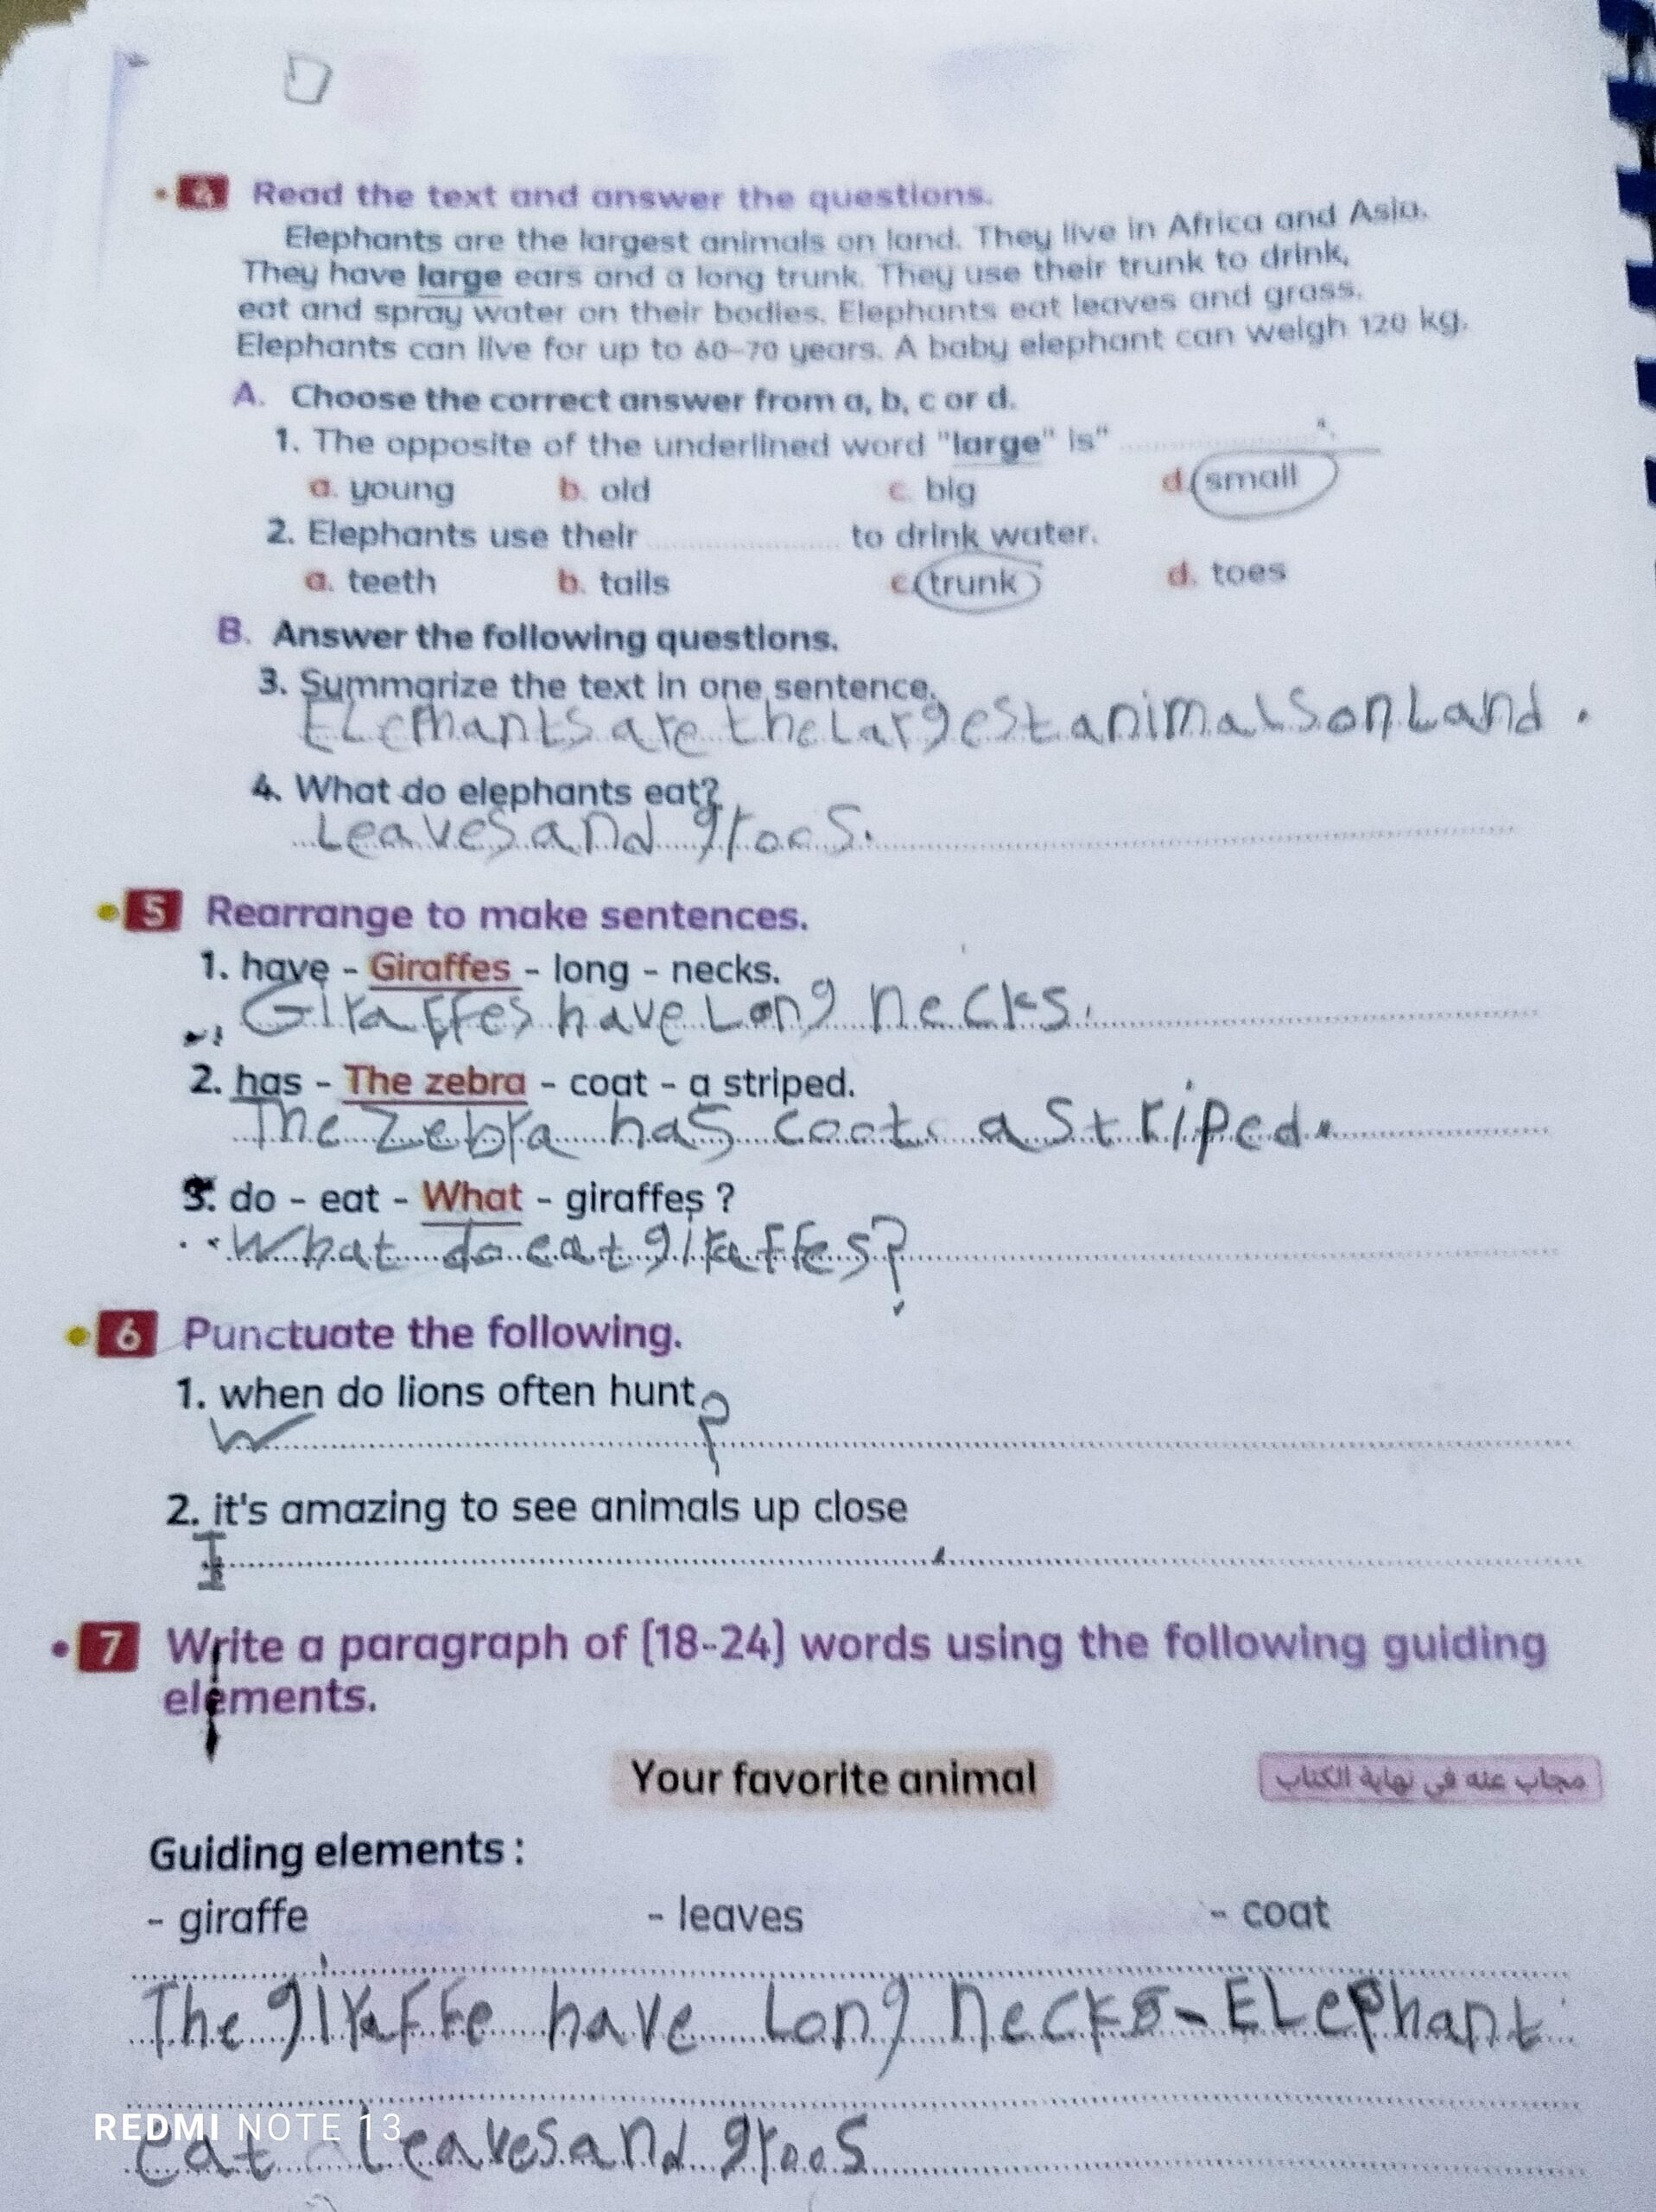 Read the text and answer the questions.
Elephants are the largest animals on land. They live in Africa and Asia.
They have large ears and a long trunk. They use their trunk to drink,
eat and spray water on their bodies. Elephants eat leaves and grass.
Elephants can live for up to 60-70 years. A baby elephant can weigh 120 kg.
A. Choose the correct answer from a, b, c or d.
1. The opposite of the underlined word "large" is" ...............".
a. young b. old c. big d. small
2. Elephants use their ............... to drink water.
a. teeth b. tails c. trunk d. toes
B. Answer the following questions.
3. Summarize the text in one sentence.
ELephants are the Largest animals on Land.
4. What do elephants eat?
Leaves and groos.
5 Rearrange to make sentences.
1. have - Giraffes - long - necks.
Giraffes have Long necks.
2. has - The zebra - coat - a striped.
The Zebra has coot a striped.
3. do - eat - What - giraffes ?
What do eat giraffes?
6 Punctuate the following.
1. when do lions often hunt
W ?
2. it's amazing to see animals up close
I .
7 Write a paragraph of (18-24) words using the following guiding
elements.
Your favorite animal مجاب عنه في نهاية الكتاب
Guiding elements :
- giraffe - leaves - coat
The giraffe have Long necks - ELephant
REDMI NOTE 13
eat Leaves and groos